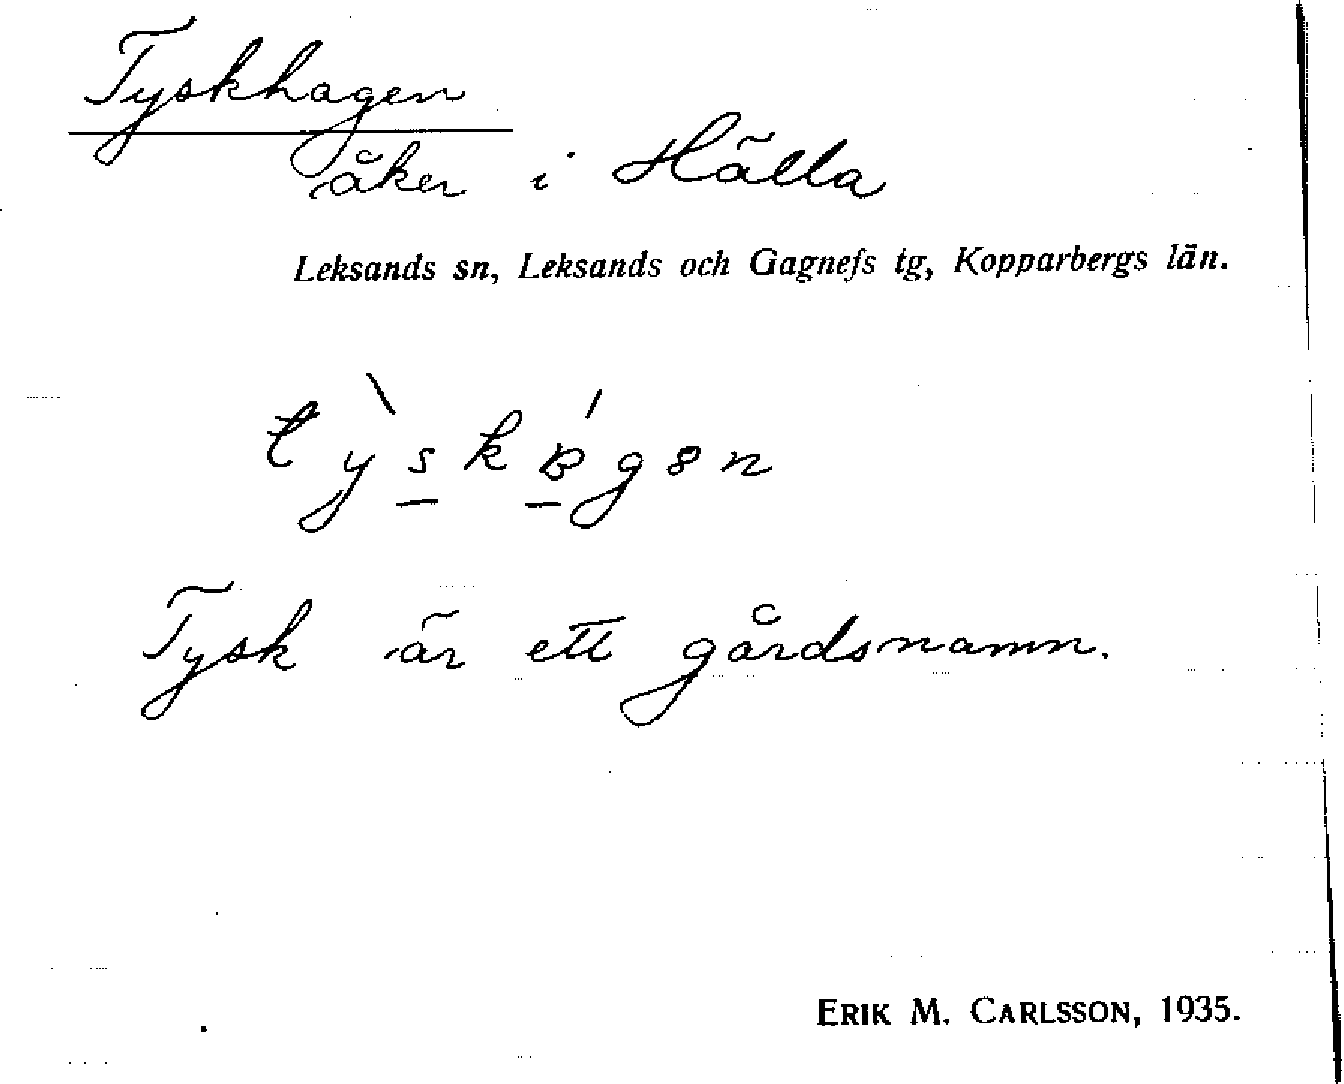 Tyskhagen
åker i Hälla
Leksands sn, Leksands och Gagnefs tg, Kopparbergs län.
Tysk är ett gårdsnamn.
ERIK M. CARLSSON, 1935.